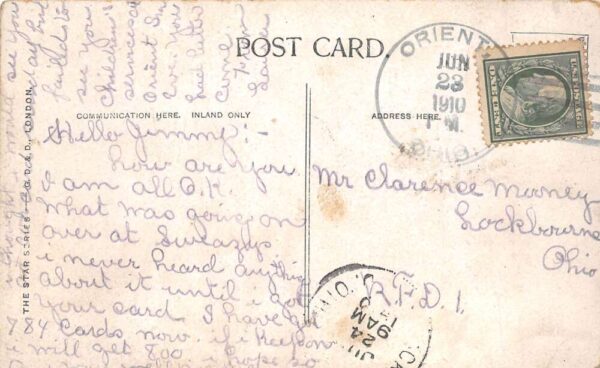 POST CARD.
COMMUNICATION HERE. INLAND ONLY
ADDRESS HERE.
THE STAR SERIES. G. D. & D., LONDON.
ORIENT
JUN
23
1910
P M.
OHIO.
U.S. POSTAGE
ONE CENT
Hello Jimmy:-
how are you
I am all O.K.
what was going on
over at
i never heard anything
about it until i got
your card I have got
784 cards now. if i keep on
i will get 800
i hope so
i thought i would see you
day but
failed to
see you
Children's
services at
Orient Sun
Eve. You
had better
come
Mr Clarence Mooney
Lockbourne
Ohio
R.F.D. 1.
24
9AM